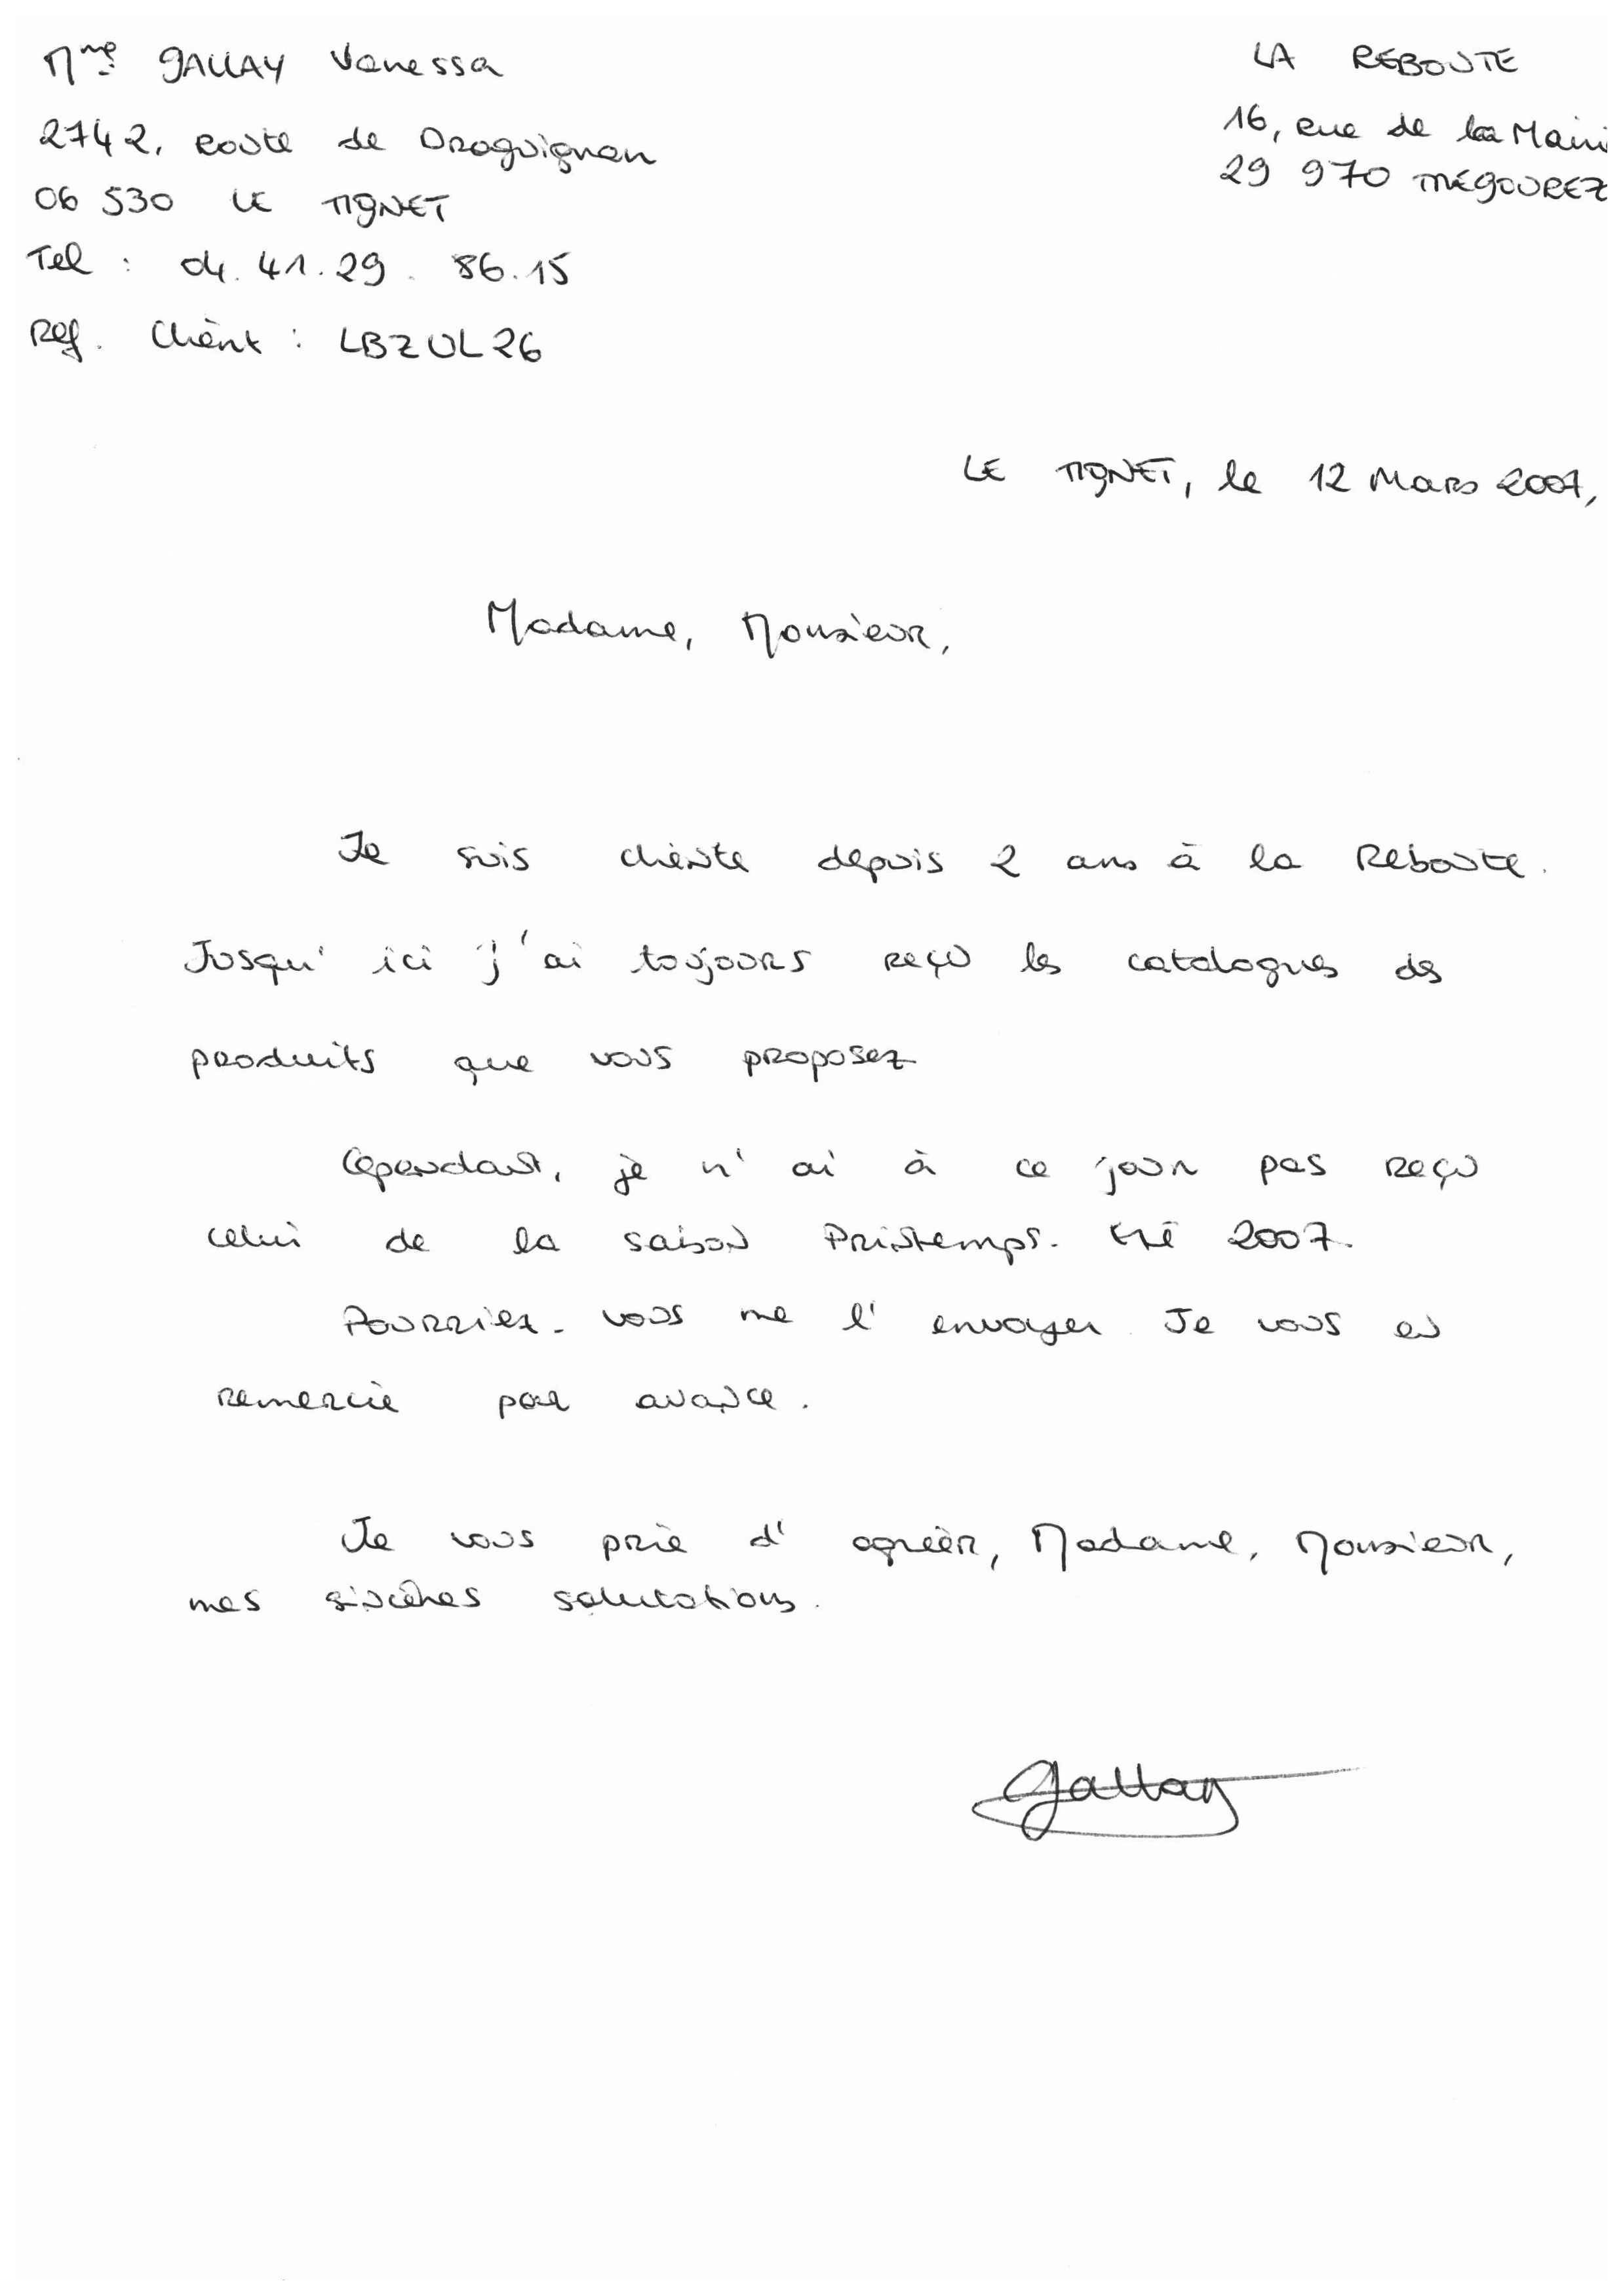 Mme GALLAY Vanessa
2742, route de Draguignan
06 530 LE TIGNET
Tel : 04. 41. 29. 86. 15
Ref. Client : LBZUL26
LA REBOUTE
16, rue de la Mairi
29 970 TREGOUREZ
LE TIGNET, le 12 Mars 2007,
Madame, Monsieur,
Je suis cliente depuis 2 ans à la Reboute.
Jusqu'ici j'ai toujours reçu les catalogues des
produits que vous proposez
Cependant, je n'ai à ce jour pas reçu
celui de la saison Printemps-Eté 2007.
Pourriez-vous me l'envoyer Je vous en
remercie par avance.
Je vous prie d'agréer, Madame, Monsieur,
mes sincères salutations.
Gallay